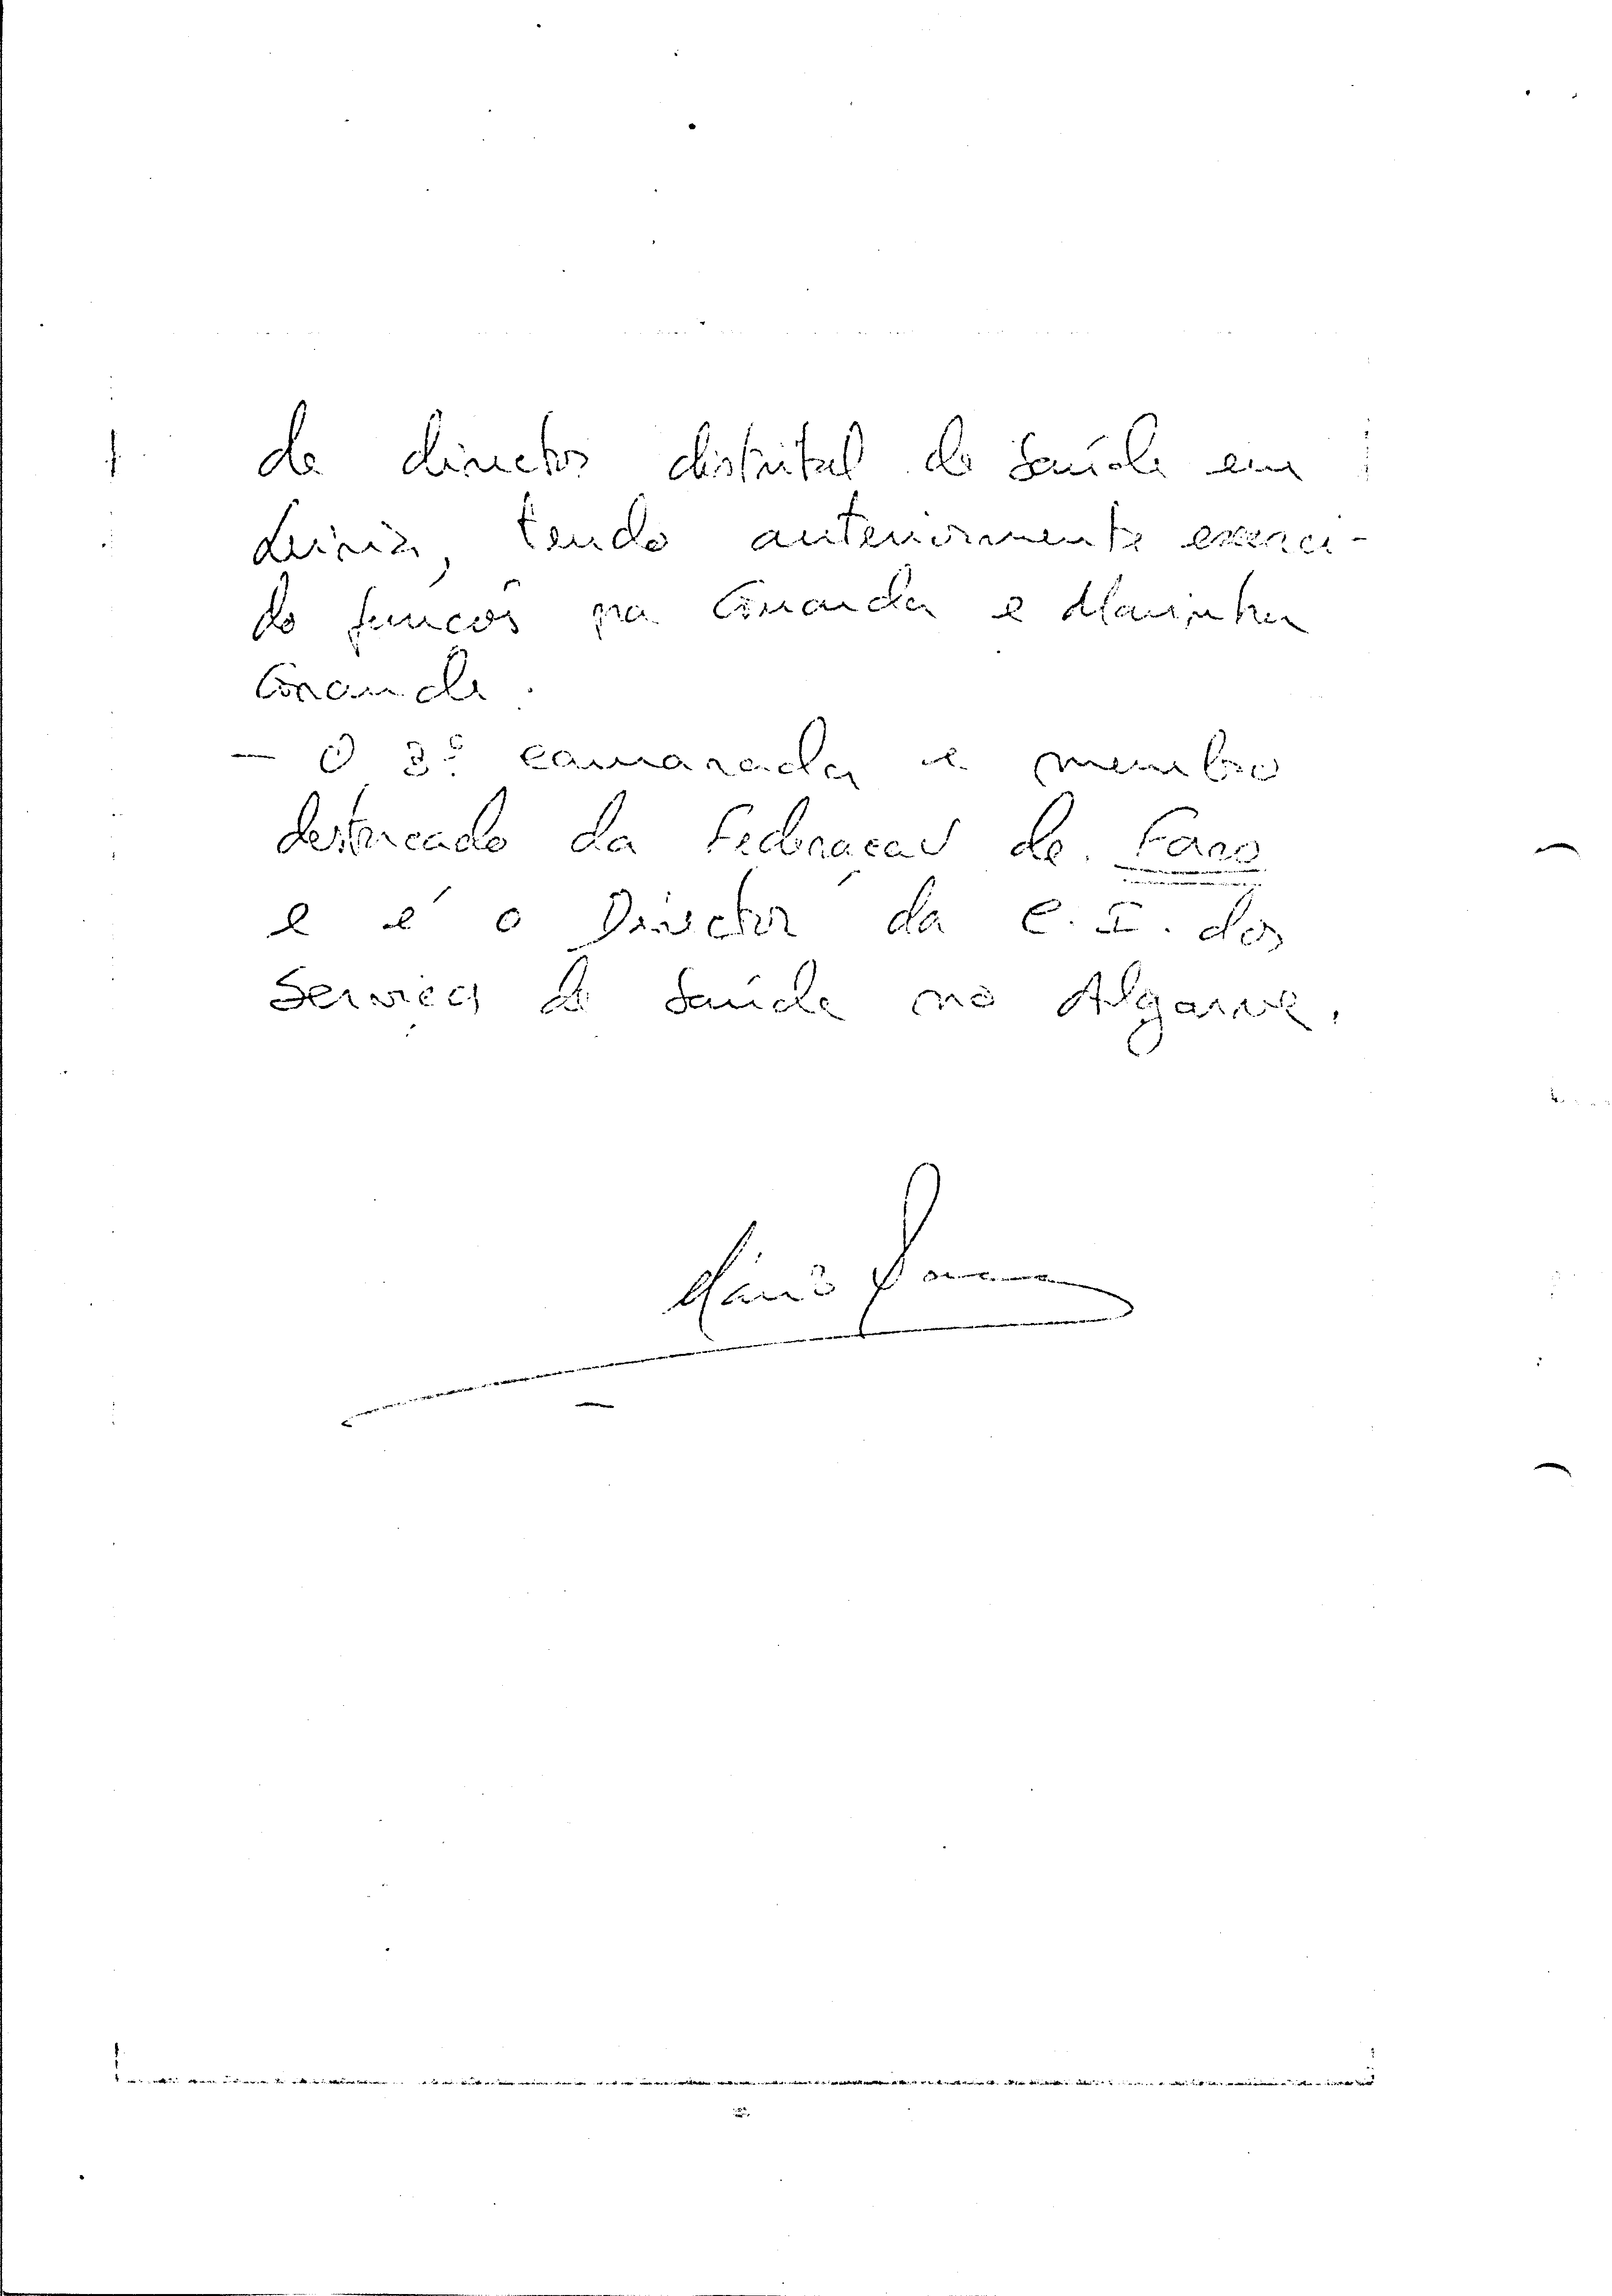 de director distrital de Saúde em
Leiria, tendo anteriormente exerci-
do funções na Guarda e Marinha
Grande.
— O 3º camarada é membro
destacado da Federação de Faro
e é o Director da C. I. dos
Serviços de Saúde no Algarve.
Mário